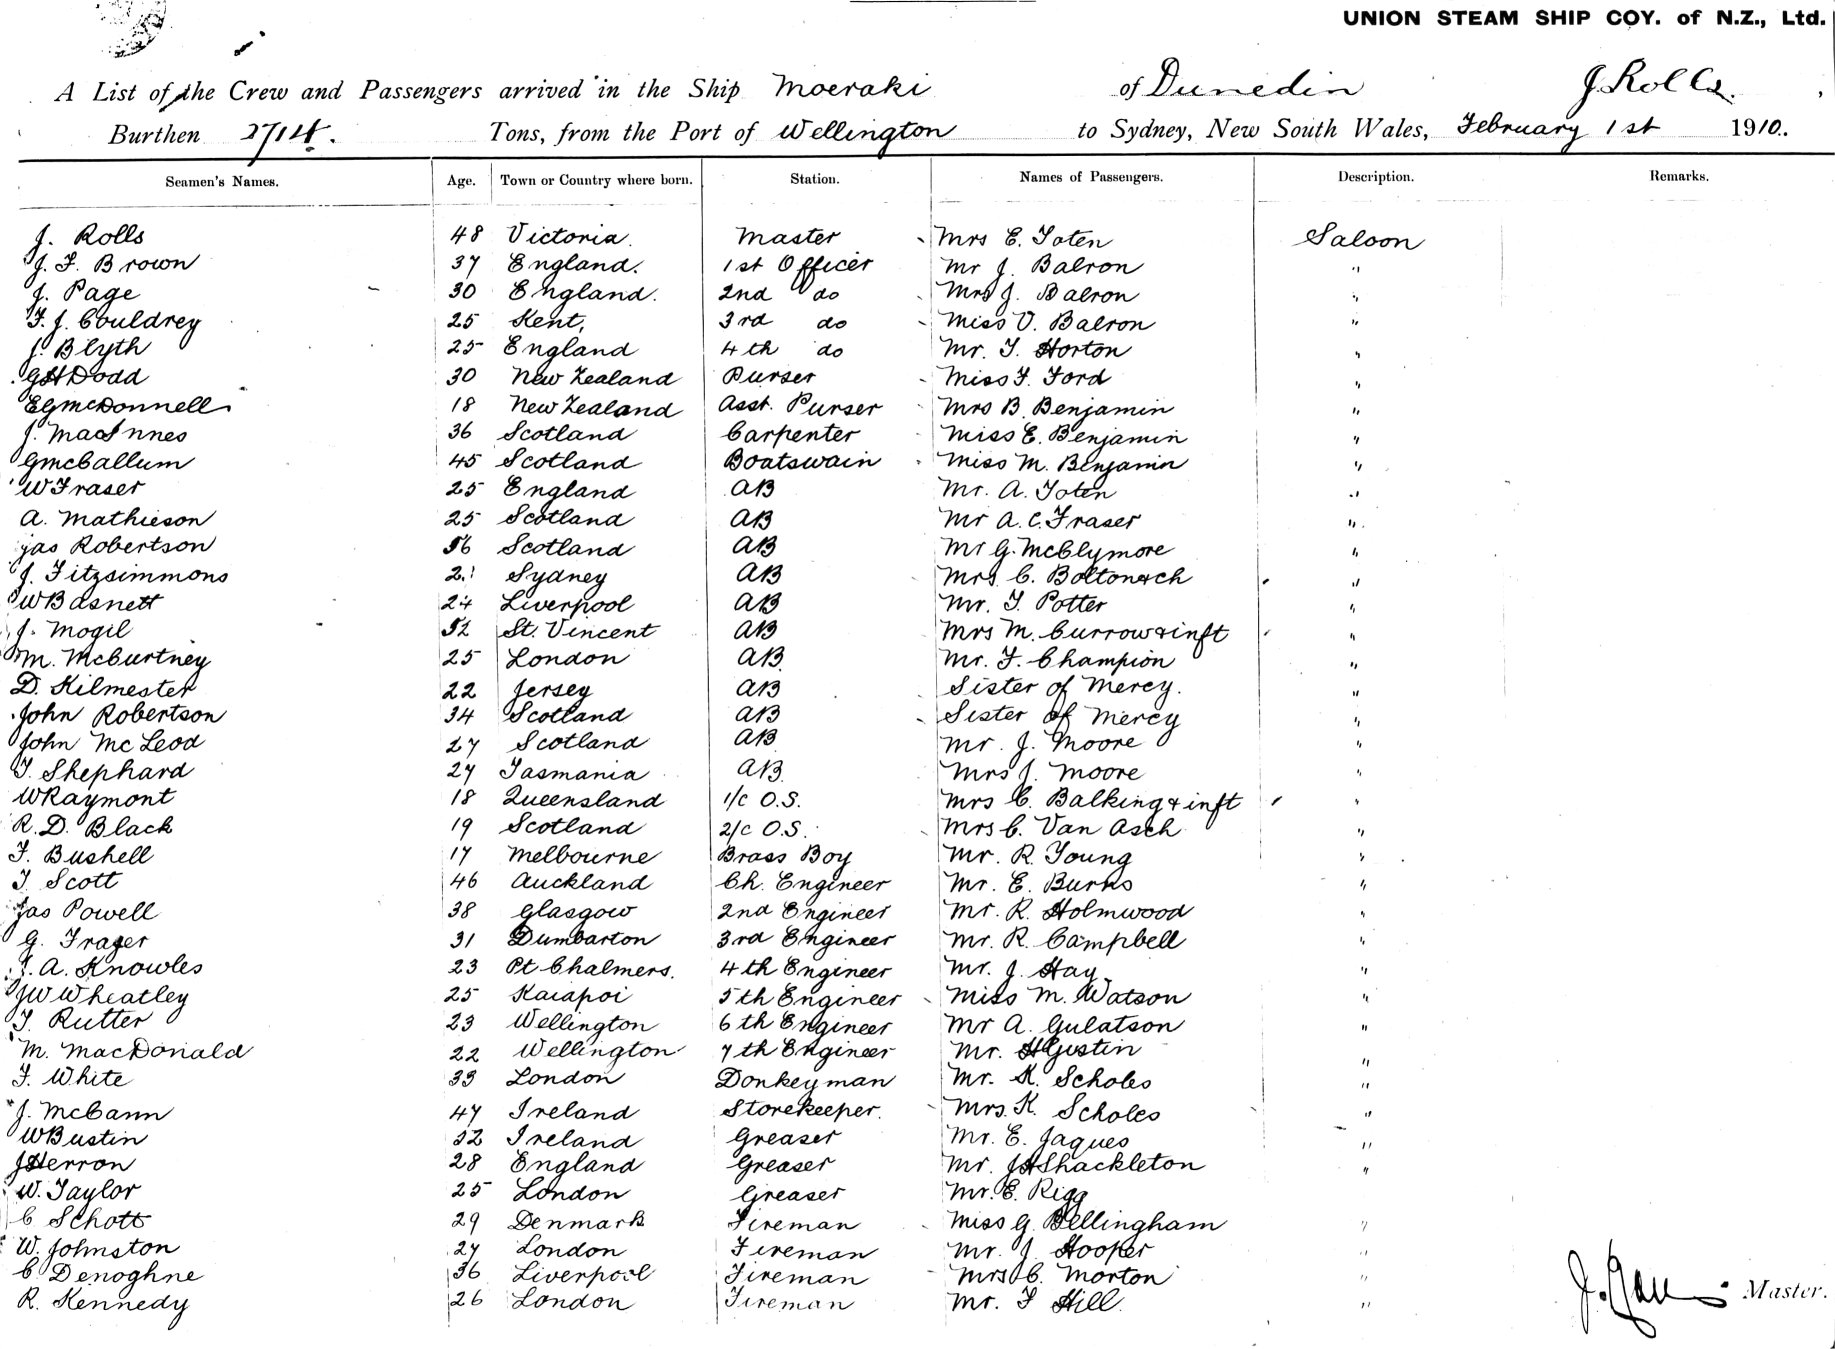 UNION STEAM SHIP COY. of N.Z., Ltd.
A List of the Crew and Passengers arrived in the Ship Moeraki of Dunedin J. Rolls
Burthen 2714. Tons, from the Port of Wellington to Sydney, New South Wales, February 1st 1910.
Seamen's Names. Age. Town or Country where born. Station. Names of Passengers. Description. Remarks.
J. Rolls 48 Victoria. Master Mrs E. Toten Saloon
J. F. Brown 37 England. 1st Officer Mr J. Balron "
J. Page 30 England. 2nd do Mrs J. Balron "
F. J. Couldrey 25 Kent, 3rd do Miss V. Balron "
J. Blyth 25 England 4th do Mr. T. Horton "
GH Dodd 30 New Zealand Purser Miss F. Ford "
EG McDonnell 18 New Zealand Asst. Purser Mrs B. Benjamin "
J. MacInnes 36 Scotland Carpenter Miss E. Benjamin "
G McCallum 45 Scotland Boatswain Miss M. Benjamin "
W Fraser 25 England AB Mr. A. Toten "
A. Mathieson 25 Scotland AB Mr A. C. Fraser "
Jas Robertson 56 Scotland AB Mr G. McClymore "
J. Fitzsimmons Sydney AB Mrs C. Bolton & ch "
W Basnett 24 Liverpool AB Mr. T. Potter "
J. Mogil 52 St. Vincent AB Mrs M. Currow & inft "
M. McBurtney 25 London AB. Mr. F. Champion "
D. Kilmester 22 Jersey AB Sister of Mercy. "
John Robertson 34 Scotland AB Sister of Mercy "
John McLeod 27 Scotland AB Mr. J. Moore "
T. Shephard 27 Tasmania AB. Mrs J. Moore "
W Raymont 18 Queensland 1/c O.S. Mrs C. Balking & inft "
R. D. Black 19 Scotland 2/c O.S. Mrs C. Van Asch "
F. Bushell 17 Melbourne Brass Boy Mr. R. Young "
T. Scott 46 Auckland Ch. Engineer Mr. E. Burns "
Jas Powell 38 Glasgow 2nd Engineer Mr. R. Holmwood "
G. Fraser 31 Dumbarton 3rd Engineer Mr. R. Campbell "
A. Knowles 23 Pt Chalmers. 4th Engineer Mr. J. Hay "
JW Wheatley 25 Kaiapoi 5th Engineer Miss M. Watson "
T. Rutter 23 Wellington 6th Engineer Mr A. Gulatson "
M. MacDonald 22 Wellington 7th Engineer Mr. H Gustin "
F. White 33 London Donkeyman Mr. K. Scholes "
J. McCann 47 Ireland Storekeeper. Mrs. K. Scholes "
W Bustin 32 Ireland Greaser Mr. E. Jaques "
J Herron 28 England Greaser Mr. JH Shackleton "
W. Taylor 25 London Greaser Mr. E. Rigg
C Schott 29 Denmark Fireman Miss G. Bellingham "
W. Johnston 27 London Fireman Mr. J. Hooper "
C Denoghne 36 Liverpool Fireman Mrs C. Morton "
R. Kennedy 26 London Fireman Mr. F Hill. "
Master.